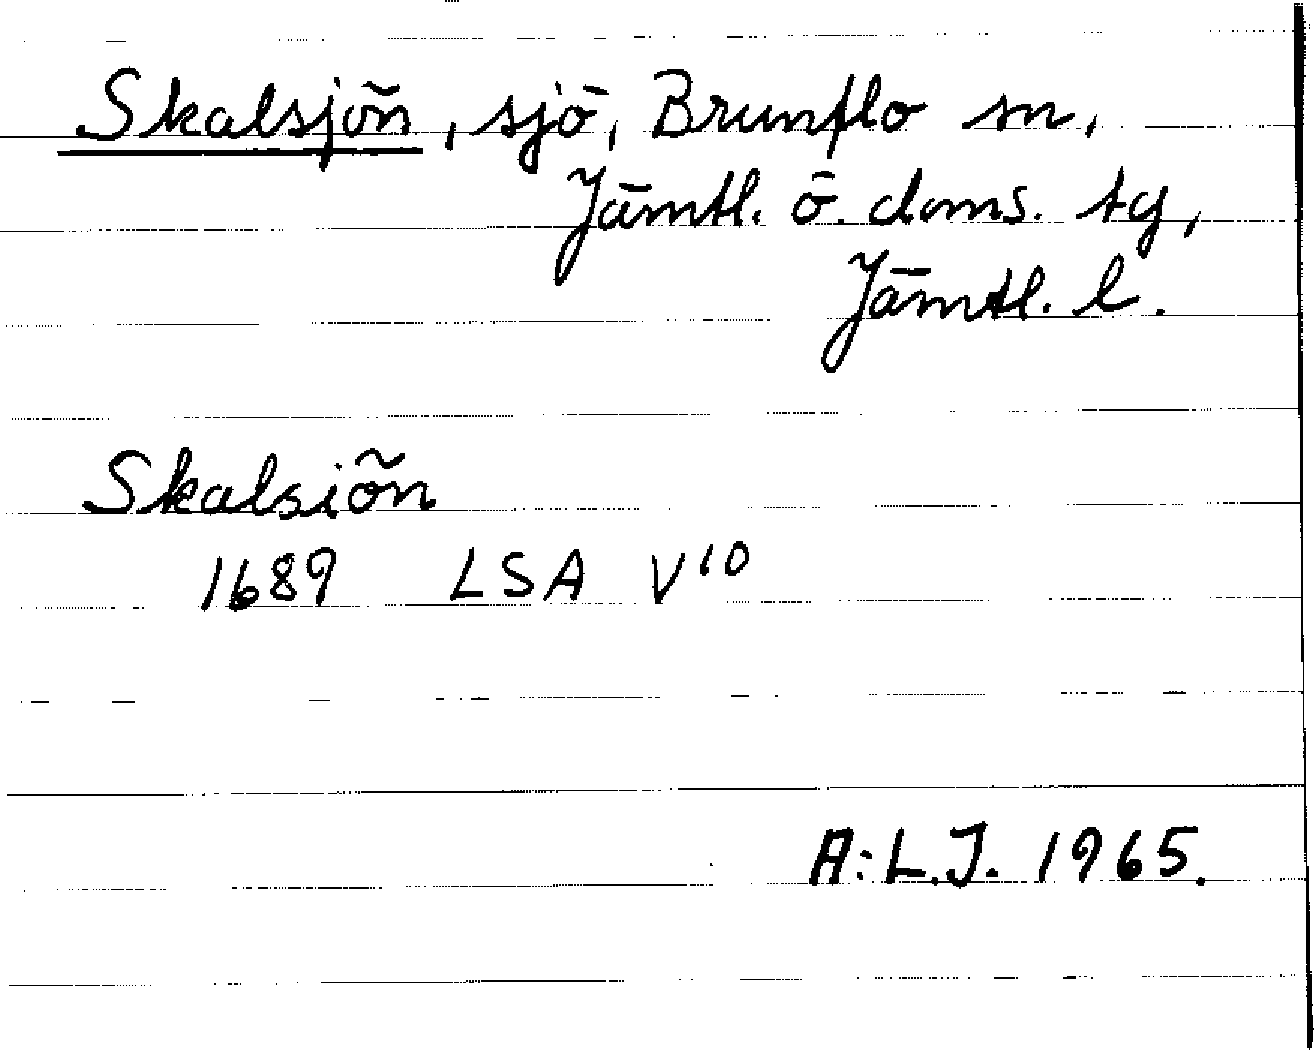 Skalsjön, sjö, Brunflo sn,
Jämtl. ö. doms. tg,
Jämtl. l.
Skalsiön
1689 LSA V¹⁰
A:L.J. 1965.